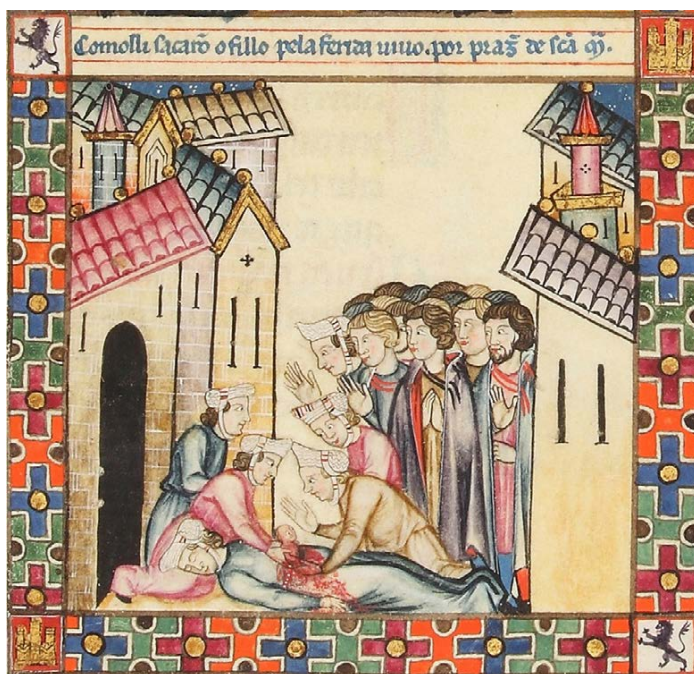 Comoſſi ſacarõ o fillo pela ferida uiuo. por praz̃ de ſcã m̃.